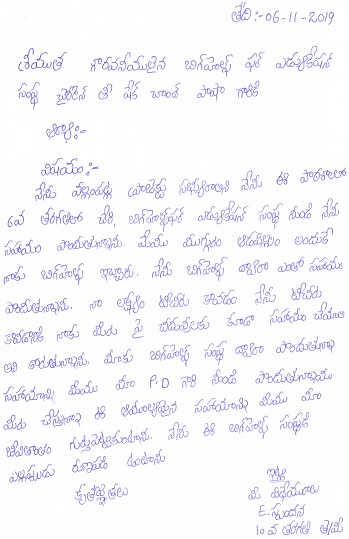 తేది:- 06-11-2019
శ్రీయుత గౌరవనీయులైన బిగ్‌హెల్ప్ ఫర్ ఎడ్యుకేషన్
సంస్థ చైర్మెన్ శ్రీ షేక్ చాంద్ పాషా గారికి
ఆర్యా:-
విషయం:-
నేను వెల్లంపల్లి ప్రాజెక్టు నేను ఈ పాఠశాలలో
6వ తరగతిలో చేరి, బిగ్‌హెల్ప్‌ఫర్ ఎడ్యుకేషన్ సంస్థ నుండి నేను
సహాయం పొందుతున్నాను. మేము ముగ్గురం ఆడపిల్లలం అందుకే
నాకు బిగ్‌హెల్ప్ ఇచ్చారు. నేను బిగ్‌హెల్ప్ ద్వారా ఎంతో సహాయం
పొందుతున్నాను. నా లక్ష్యం టీచరు కావడం నేను టీచరు
కావడానికి నాకు మీరు పై చదువులకు కూడా సహాయం చేయాలి
అని కోరుతున్నాను. మీకు బిగ్‌హెల్ప్ సంస్థ ద్వారా పొందుతున్న
సహాయాన్ని మేము మా P.D గారి నుండి పొందుతున్నాము
మీరు చేస్తున్న ఈ అమూల్యమైన సహాయాన్ని మేము మా
జీవితాంతం గుర్తుపెట్టుకుంటాను. నేను ఈ బిగ్‌హెల్ప్ సంస్థకి
ఎల్లప్పుడు రుణపడి ఉంటాను
కృతజ్ఞతలు
ఇట్లు
మీ విధేయురాలు
E. స్పందన
10 వ తరగతి